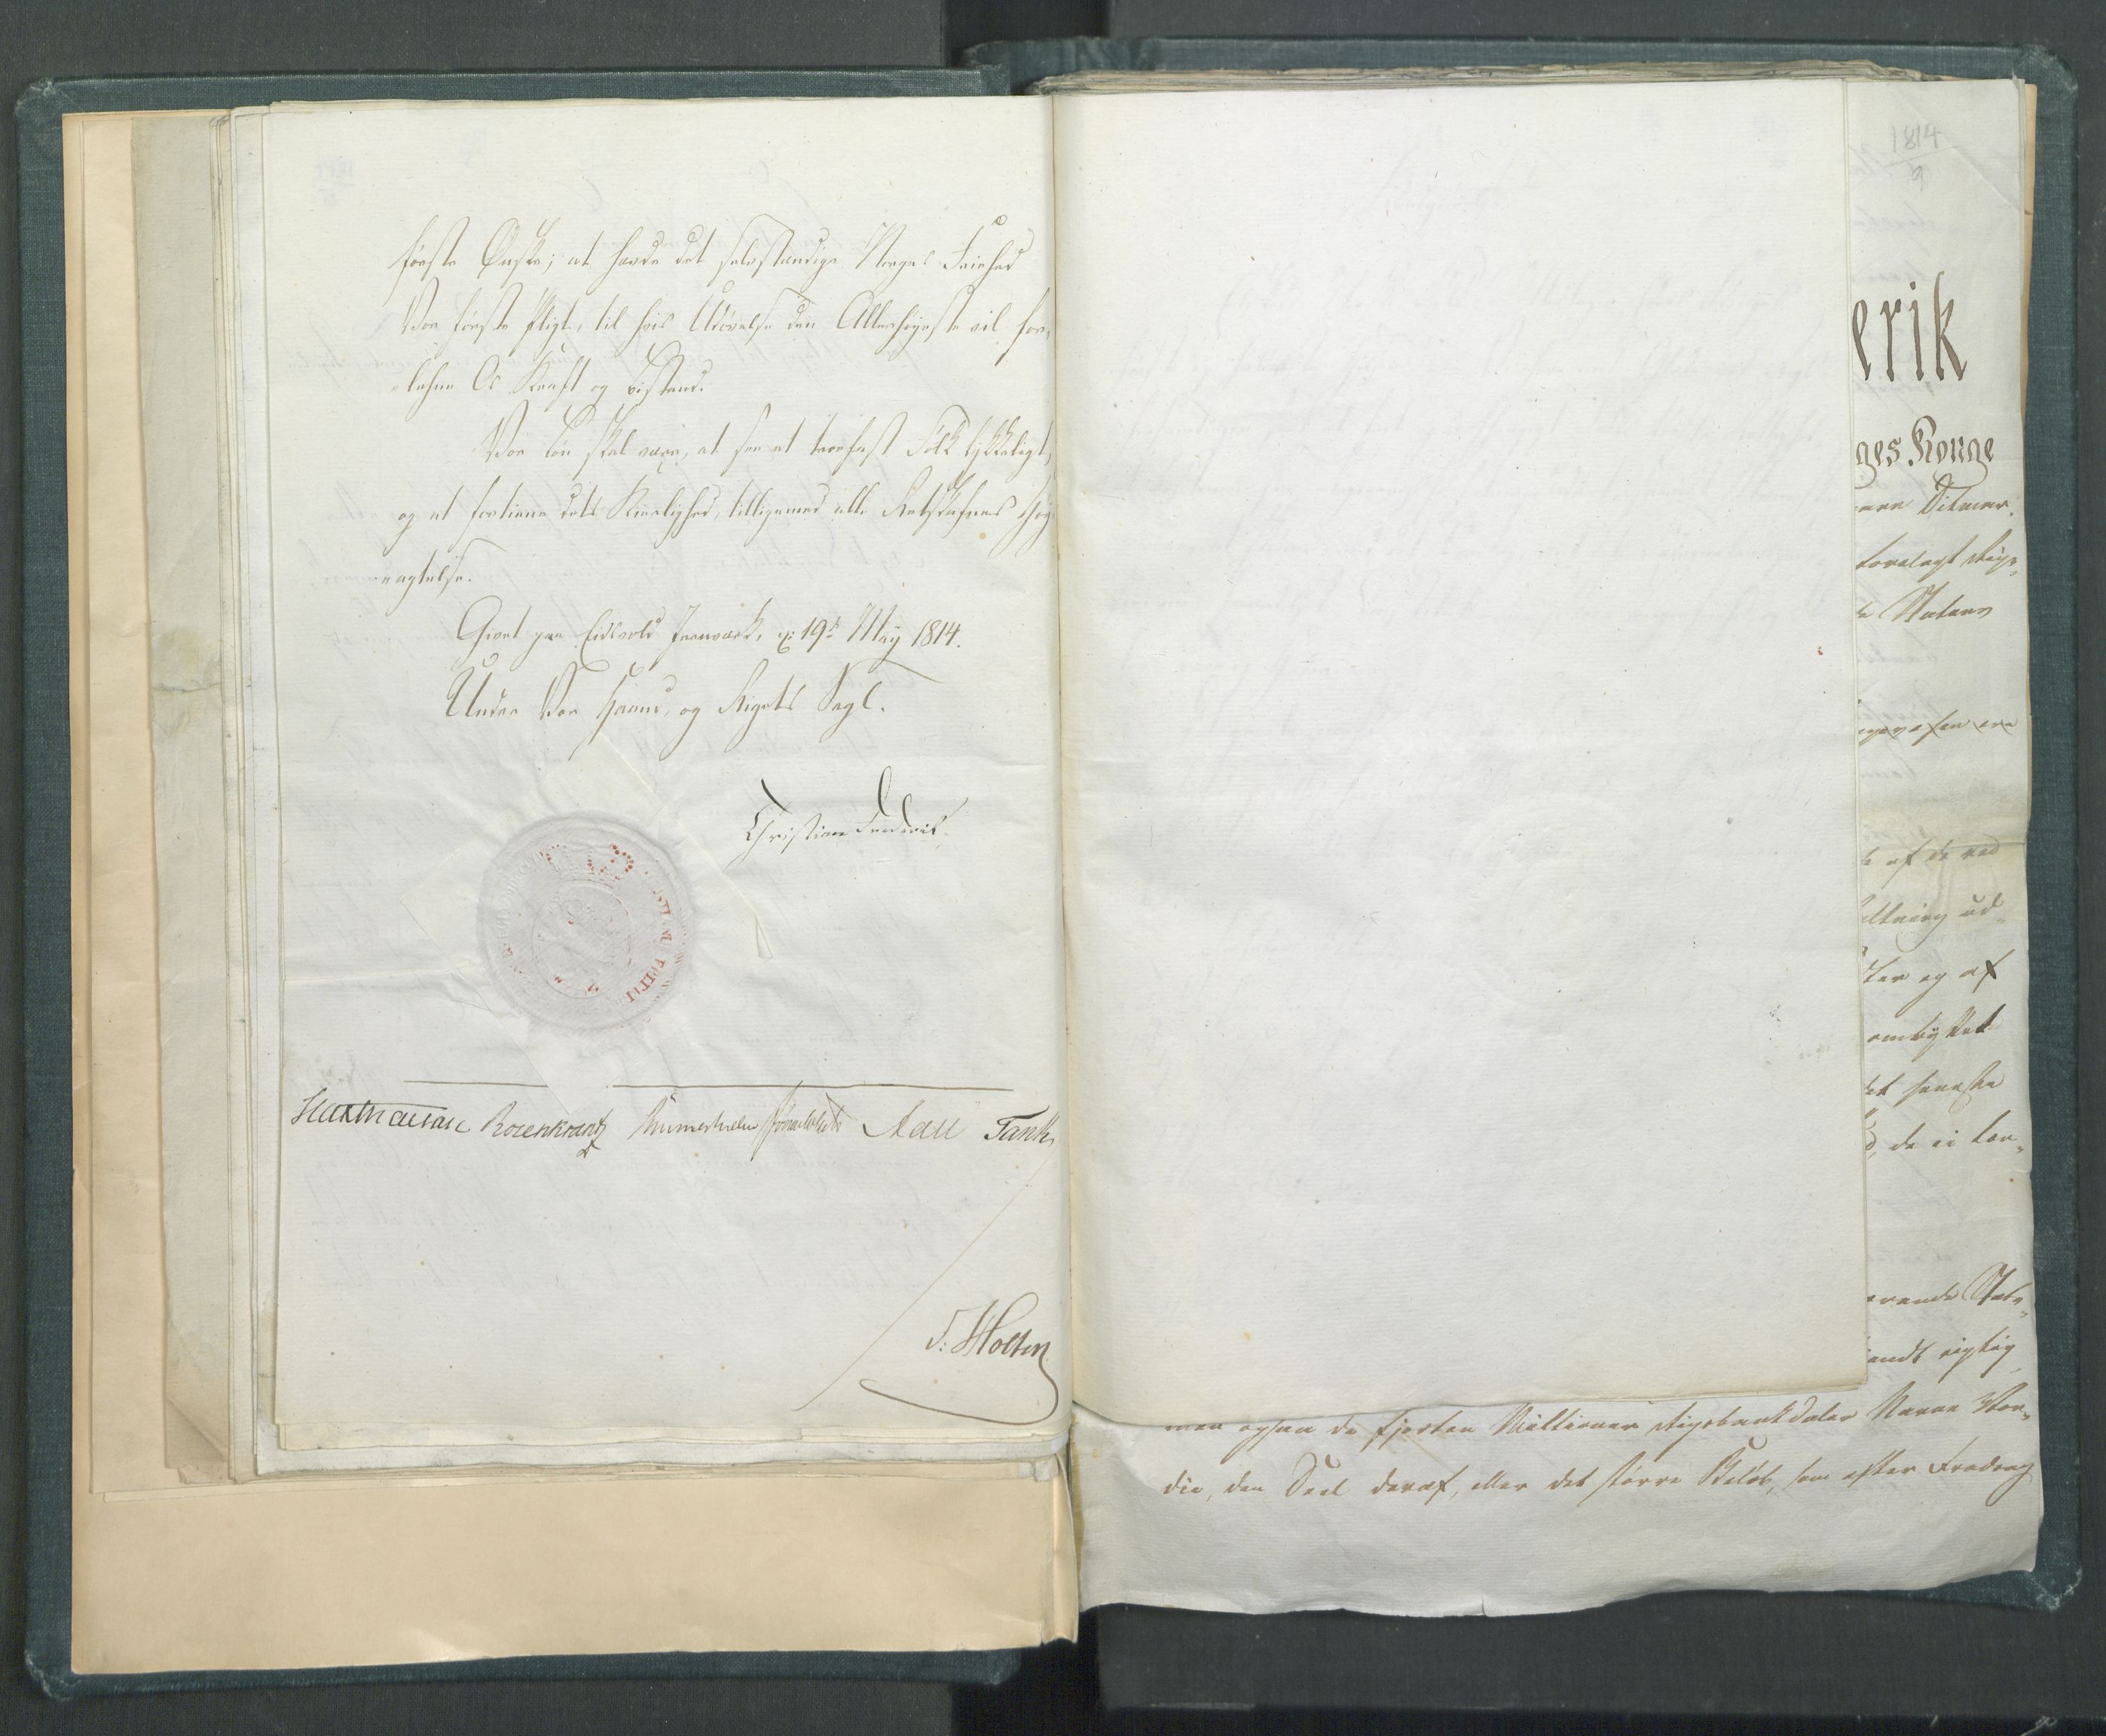 første Ønske; at hævde det selvstændige Norges Friehed
Vor første Pligt, til hvis Udøvelse den Allerhøyeste vil for-
lehne Os Kraft og Bistand.
Vor Løn skal være, at see et troefast Folk lykkeligt,
og at fortiene dets Kierlighed, tilligemed alle Retskafnes Høy-
agtelse.
Givet paa Eidsvold Jernværk, d: 19de May 1814.
Under Vor Haand, og Rigets Segl.
Christian Frederik.
Haxthausen Rosenkrantz Sommerhielm Aall Tank
T: Holten
1814
9
erik
ges Konge
Ditmar-
forelagt Rigs-
Statens
af de ved
ud-
ter og af
ombyttet
et seneste
de ei
Stats-
rigtig
men ogsaa de fjorten Millioner Rigsbankdaler Navne Vær-
die, den Deel deraf, eller det større Beløb, som efter Fradrag